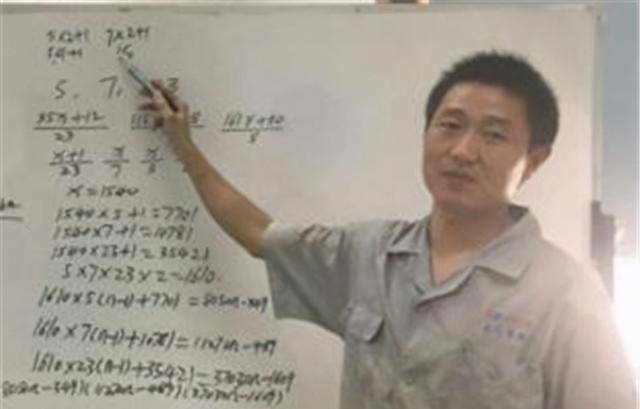 5x2+1 7x2+1
15
5, 7, 23
35x+12/23 161x+90/5
x+1/23 x/7 x/5
x=1540
1540x5+1=7701
1540x7+1=10781
1540x23+1=35421
5x7x23x2=1610.
1610x5(n-1)+7701=8050n-349
1610x7(n-1)+10781=11270n-489
1610x23(n-1)+35421=37030n-1609
8050n-349)(11270n-489)(37030n-1609)